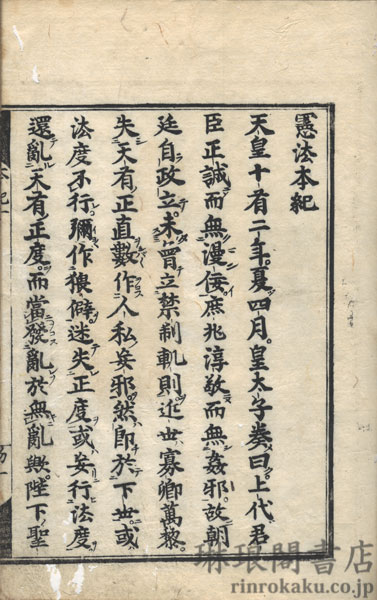 憲法本紀
天皇十有二年夏四月皇太子奏曰上代君
臣正誠而無漫佞庶兆淳敦而無姦邪故朝
廷自政立未曾立禁制軌則近世寡卿萬黎
失天有正直數作人私妄邪然即於下世或
法度不行彌作猥僻迷失正度或妄行法度
還亂天有正度而當發亂於無亂歟陛下聖
琳琅閣書店
rinrokaku.co.jp